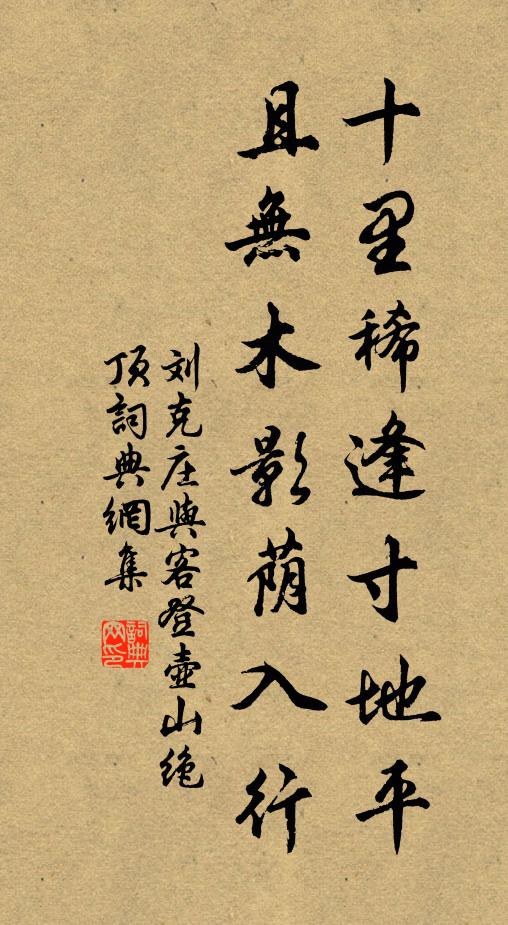 十里稀逢寸地平
且無木影荫入行
刘克庄與客登壺山绝
頂詞典網集
詞典
网印